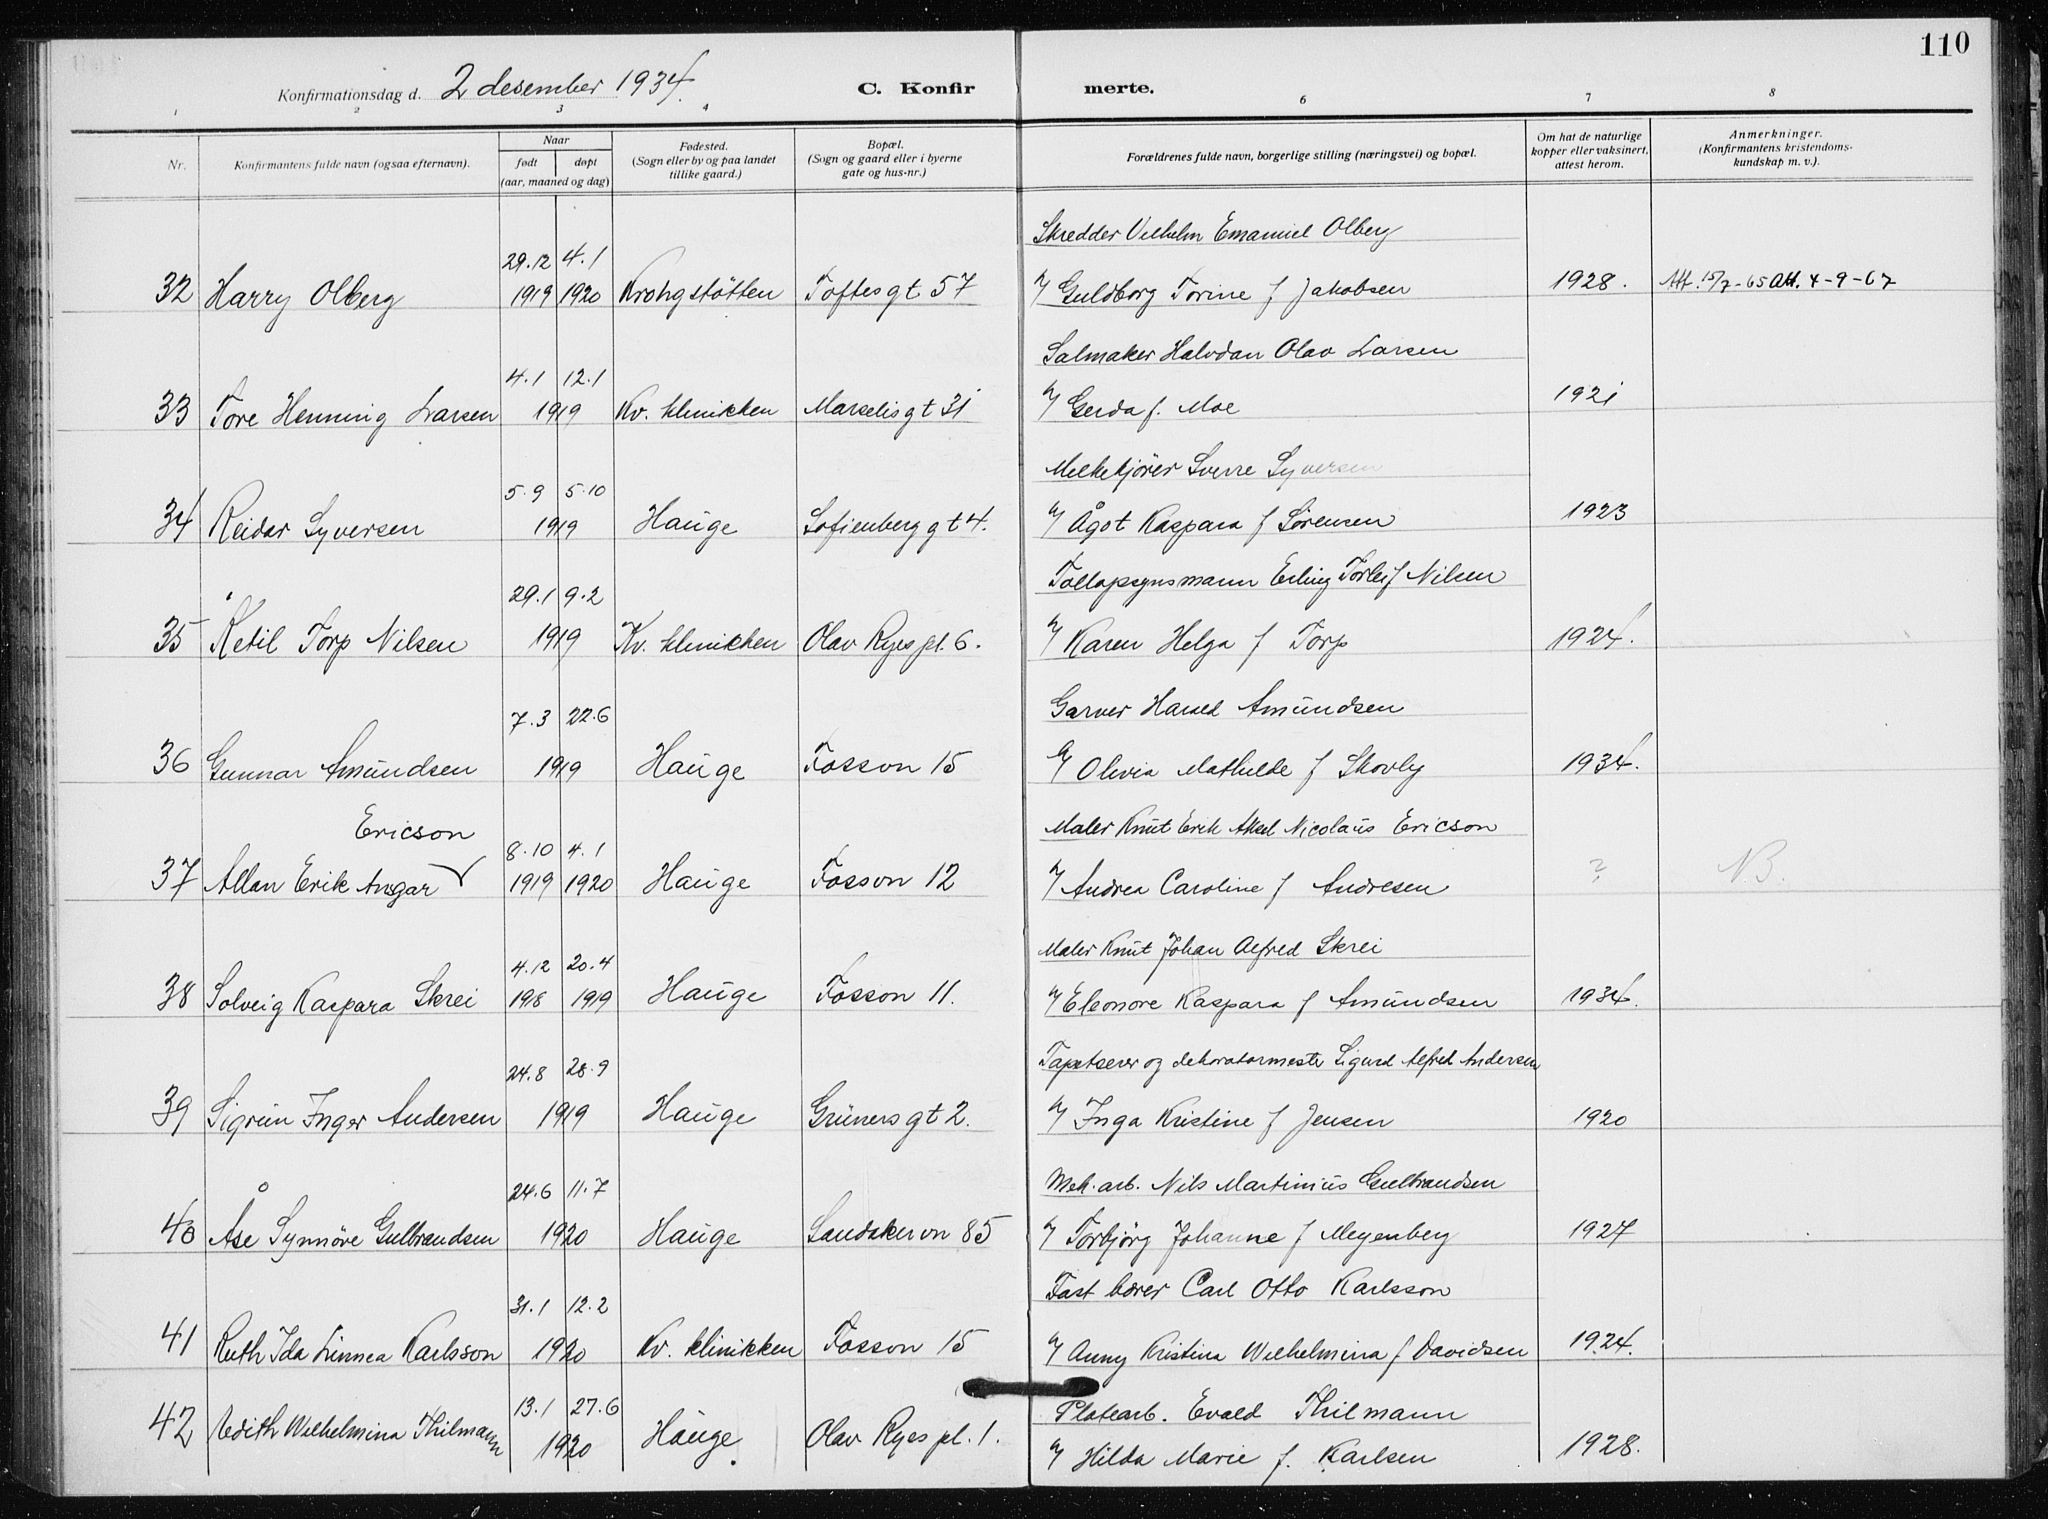 110
Konfirmationsdag d. 2 desember 1934. C. Konfirmerte.
1 2 3 4 6 7 8
Nr. Konfirmantens fulde navn (ogsaa efternavn). Naar født døpt (aar, maaned og dag) Fødested. (Sogn eller by og paa landet tillike gaard.) Bopæl. (Sogn og gaard eller i byerne gate og hus-nr.) Forældrenes fulde navn, borgerlige stilling (næringsvei) og bopæl. Om hat de naturlige kopper eller vaksinert, attest herom. Anmerkninger. (Konfirmantens kristendoms-kundskap m. v.).
Skredder Vilhelm Emanuel Olberg
29.12 4.1
32 Harry Olberg 1919 1920 Krohgstøtten Toftesgt 57 %Guldborg Torine f Jakobsen 1928. Att. 15/7-65 Att. 4-9-67
Salmaker Halvdan Olav Larsen
4.1 12.1
33 Tore Henning Larsen 1919 Kv. klinikken Marselisgt 31 % Gerda f. Moe 1921
Melkekjører Sverre Syversen
5.9 5.10
34 Reidar Syversen 1919 Hauge Sofienberggt 4. % Ågot Kaspara f Sørensen 1923
Tollopsynsmann Erling Torleif Nilsen
29.1 9.2
35 Ketil Torp Nilsen 1919 Kv. klinikken Olav Ryes pl. 6. % Karen Helga f Torp 1924.
Garver Harald Amundsen
7.3 22.6
36 Gunnar Amundsen 1919 Hauge Fossvn 15 % Olivia Mathilde f Skovly 1934.
Ericson Maler Knut Erik Aksel Nicolaus Ericson
8.10 4.1
37 Allan Erik Ansgar √ 1919 1920 Hauge Fossvn 12 % Andrea Caroline f Andresen ? N.B.
Maler Knut Johan Alfred Skrei
4.12 20.4
38 Solveig Kaspara Skrei 1918 1919 Hauge Fossvn 11. % Eleonore Kaspara f Amundsen 1934.
Tapetserer og dekoratørmester Sigurd Alfred Andersen
24.8 28.9
39 Sigrun Inger Andersen 1919 Hauge Grünersgt 2. % Inga Kristine f Jensen 1920
Mek. arb. Nils Martinius Gulbrandsen
24.6 11.7
40 Åse Synnöve Gulbrandsen 1920 Hauge Sandakervn 85 % Torbjörg Johanne f Meyenberg 1927
Fast bærer Carl Otto Karlsson
31.1 12.2
41 Ruth Ida Linnea Karlsson 1920 Kv. klinikken Fossvn 15 % Anny Kristina Wilhelmina f Davidsen 1924.
13.1 27.6 Platearb. Evald Thilmann
42 Edith Wilhelmina Thilmann 1920 Hauge. Olav Ryes pl. 1. % Hilda Marie f. Karlsen 1928.